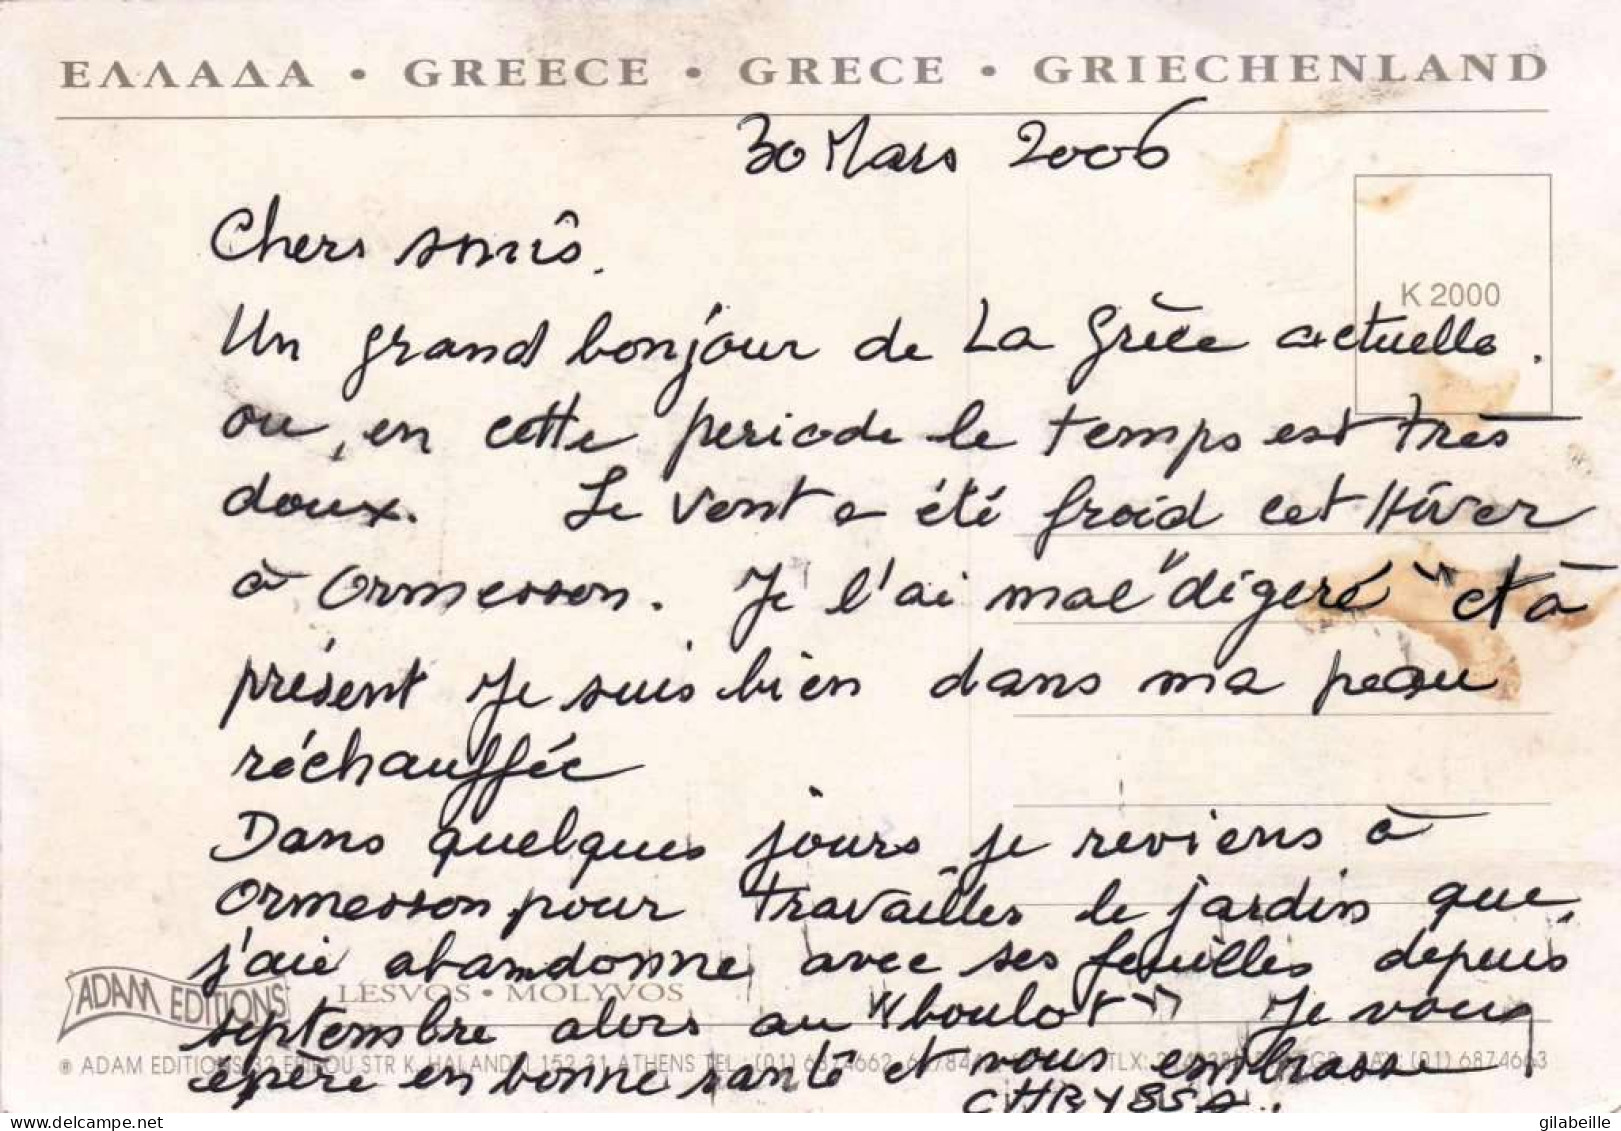 ΕΛΛΑΔΑ • GREECE • GRECE • GRIECHENLAND
30 Mars 2006
Chers amis.
K 2000
Un grand bonjour de La Grèce actuelle.
ou, en cette periode le temps est très
doux. Le vent a été froid cet Hiver
à Ormesson. Je l'ai mal "digeré" et à
présent je suis bien dans ma peau
réchauffée
Dans quelques jours je reviens à
Ormesson, pour travailler le jardin que,
j'aie abandonné avec ses feuilles depuis
ADAM EDITIONS LESVOS • MOLYVOS
septembre alors au "boulot" Je vous
® ADAM EDITIONS STR K. HALANDRI 152 31 ATHENS TEL.: (01) TLX: (01) 6874663
éspère en bonne santé et vous embrasse
CHRYSSA.
gilabeille